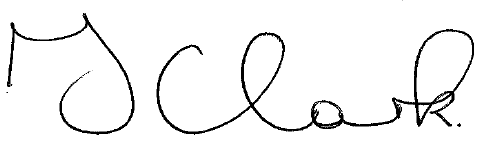 MJ Clark.